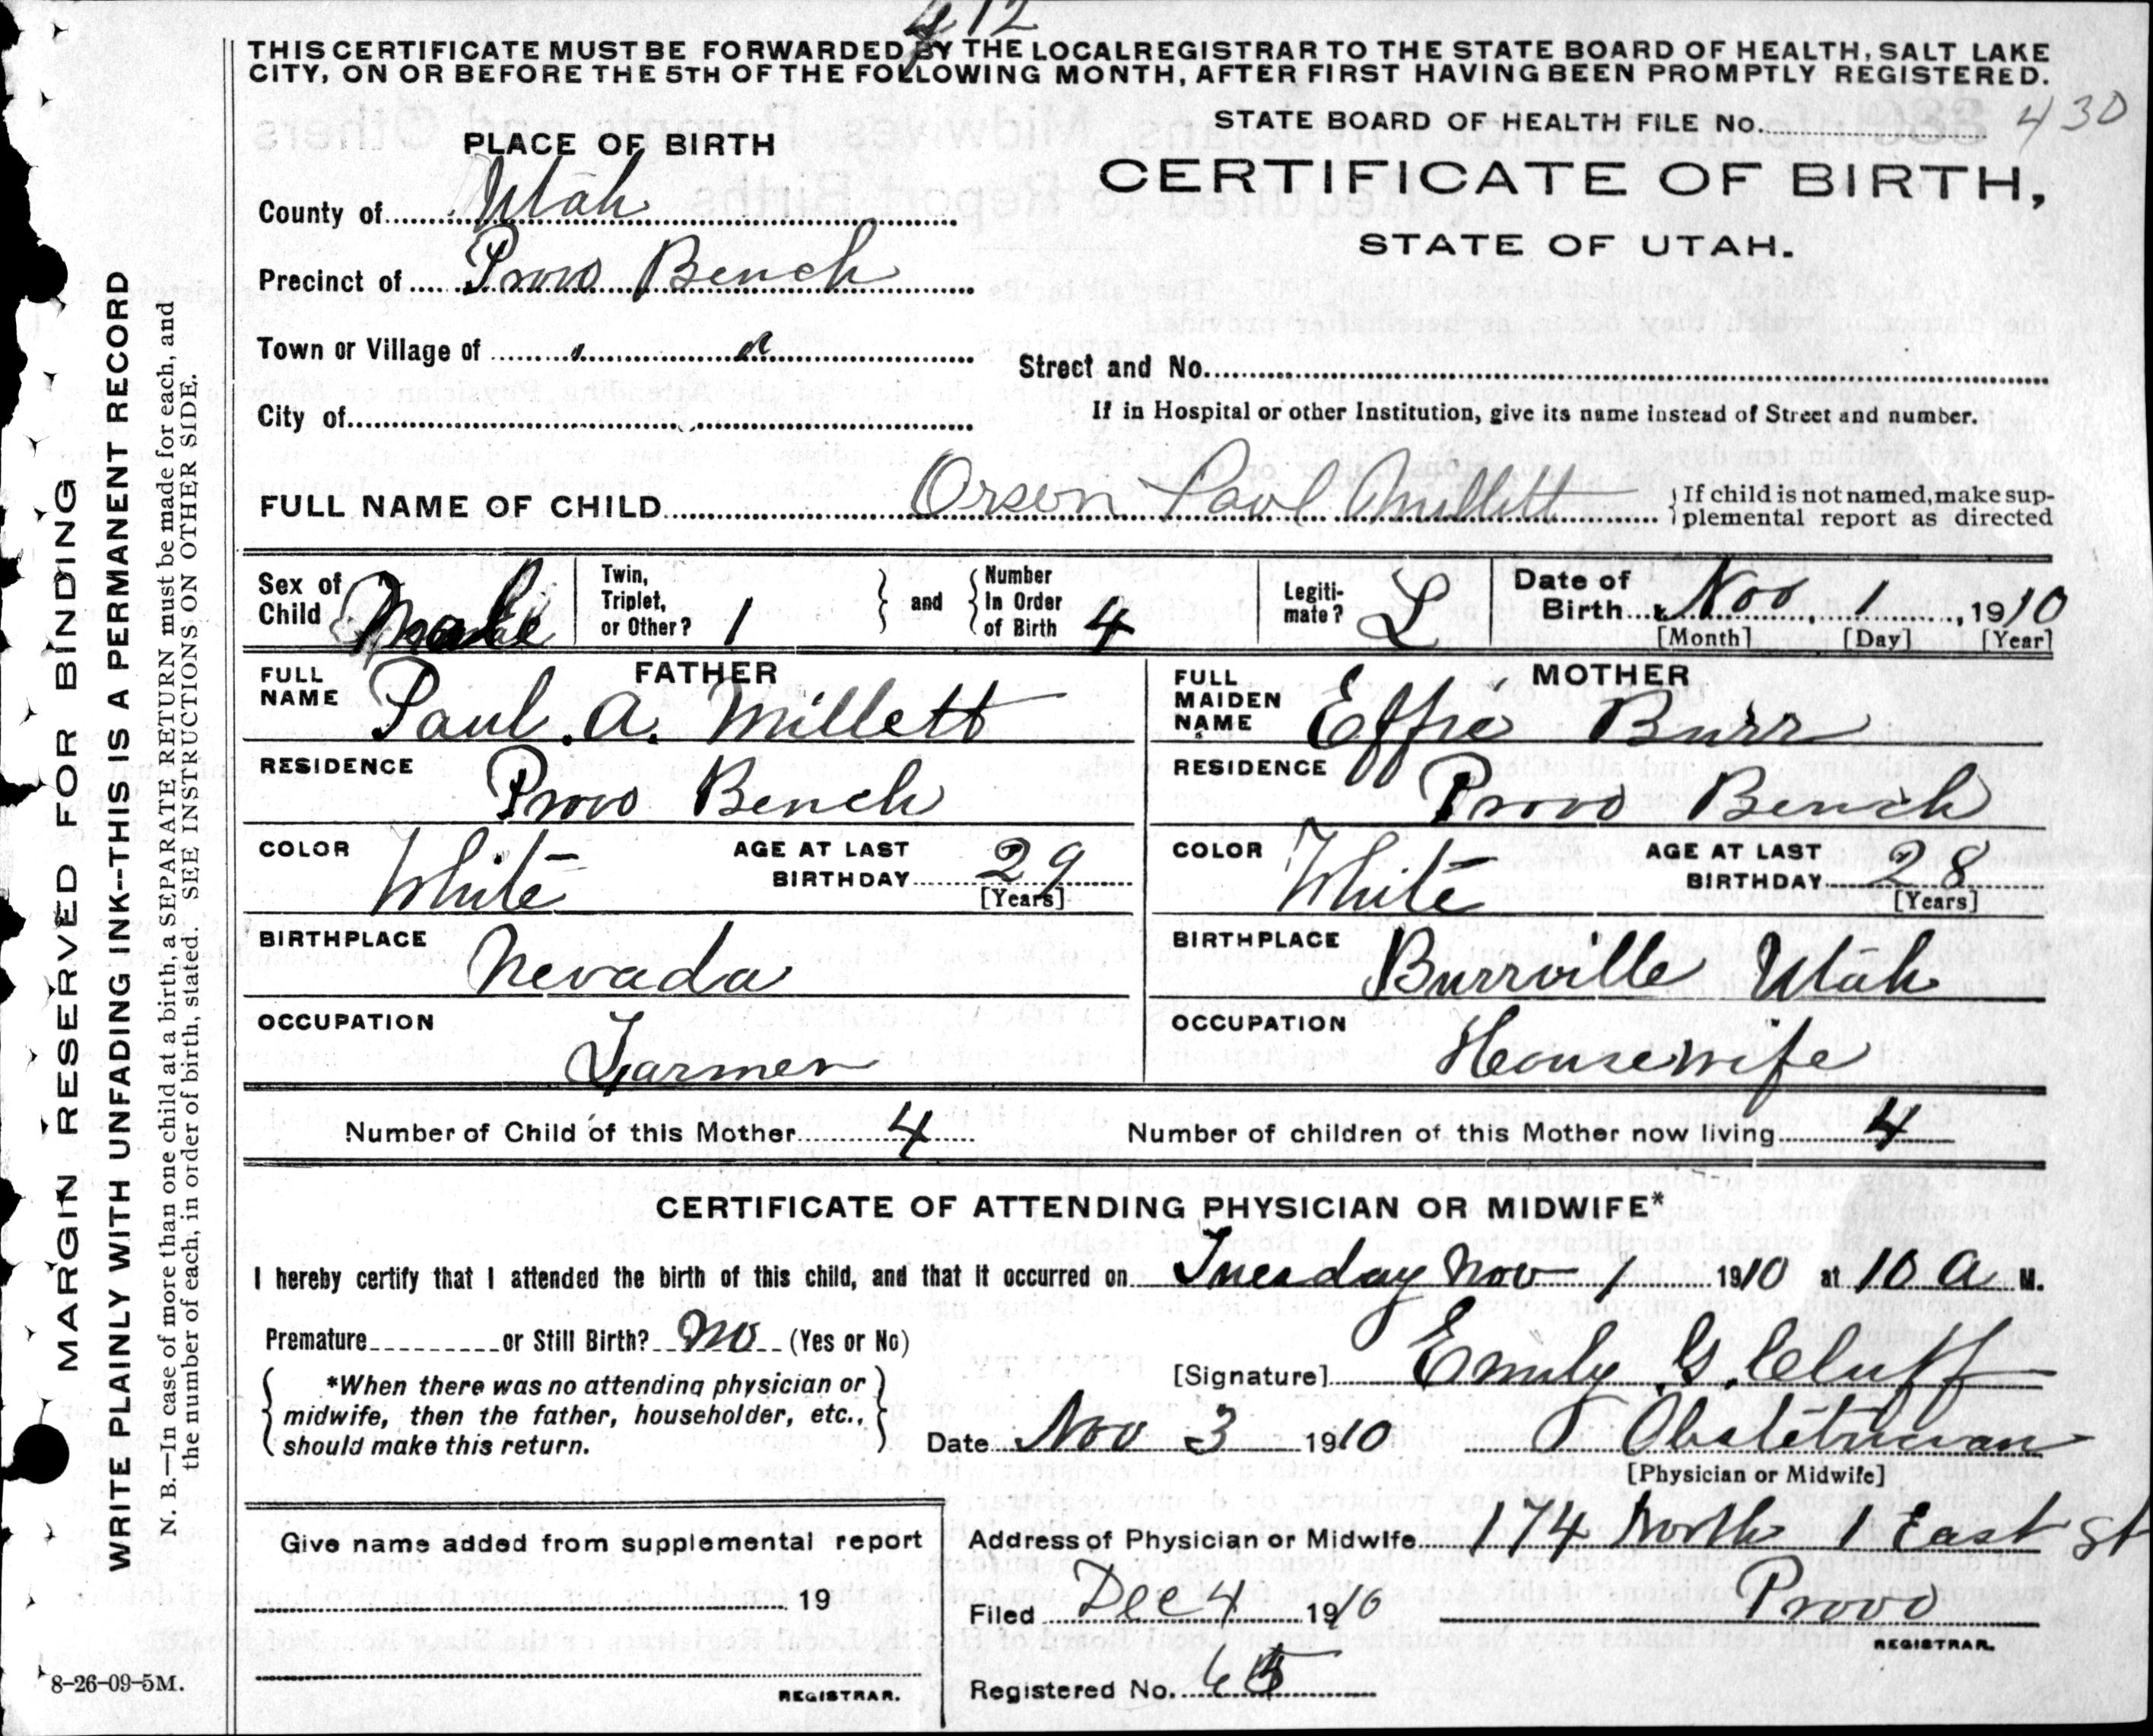 412
THIS CERTIFICATE MUST BE FORWARDED BY THE LOCAL REGISTRAR TO THE STATE BOARD OF HEALTH, SALT LAKE
CITY, ON OR BEFORE THE 5TH OF THE FOLLOWING MONTH, AFTER FIRST HAVING BEEN PROMPTLY REGISTERED.
STATE BOARD OF HEALTH FILE No. 430
PLACE OF BIRTH
CERTIFICATE OF BIRTH,
STATE OF UTAH.
County of Utah
Precinct of Provo Bench
Town or Village of " "
Street and No.
City of
If in Hospital or other Institution, give its name instead of Street and number.
FULL NAME OF CHILD Orson Paul Millett { If child is not named, make sup-
plemental report as directed
Sex of Child Male
Twin, Triplet, or Other? 1 } and { Number In Order of Birth 4
Legiti-mate? L
Date of Birth Nov 1, 1910
[Month] [Day] [Year]
FATHER
FULL NAME Paul. A. Millett
MOTHER
FULL MAIDEN NAME Effie Burr
RESIDENCE Provo Bench
RESIDENCE Provo Bench
COLOR White AGE AT LAST BIRTHDAY 29 [Years]
COLOR White AGE AT LAST BIRTHDAY 28 [Years]
BIRTHPLACE Nevada
BIRTHPLACE Burrville Utah
OCCUPATION Farmer
OCCUPATION Housewife
Number of Child of this Mother 4 Number of children of this Mother now living 4
CERTIFICATE OF ATTENDING PHYSICIAN OR MIDWIFE*
I hereby certify that I attended the birth of this child, and that it occurred on Tuesday Nov 1 1910 at 10 A M.
Premature or Still Birth? No (Yes or No)
[Signature] Emily G. Cluff
{ *When there was no attending physician or
midwife, then the father, householder, etc.,
should make this return. }
Date Nov 3 1910 Obstetrician
[Physician or Midwife]
Give name added from supplemental report
19
REGISTRAR.
Address of Physician or Midwife 174 North 1 East St
Filed Dec 4 1910 Provo
REGISTRAR.
Registered No.
8-26-09-5M.
MARGIN RESERVED FOR BINDING
WRITE PLAINLY WITH UNFADING INK--THIS IS A PERMANENT RECORD
N. B.—In case of more than one child at a birth, a SEPARATE RETURN must be made for each, and
the number of each, in order of birth, stated. SEE INSTRUCTIONS ON OTHER SIDE.